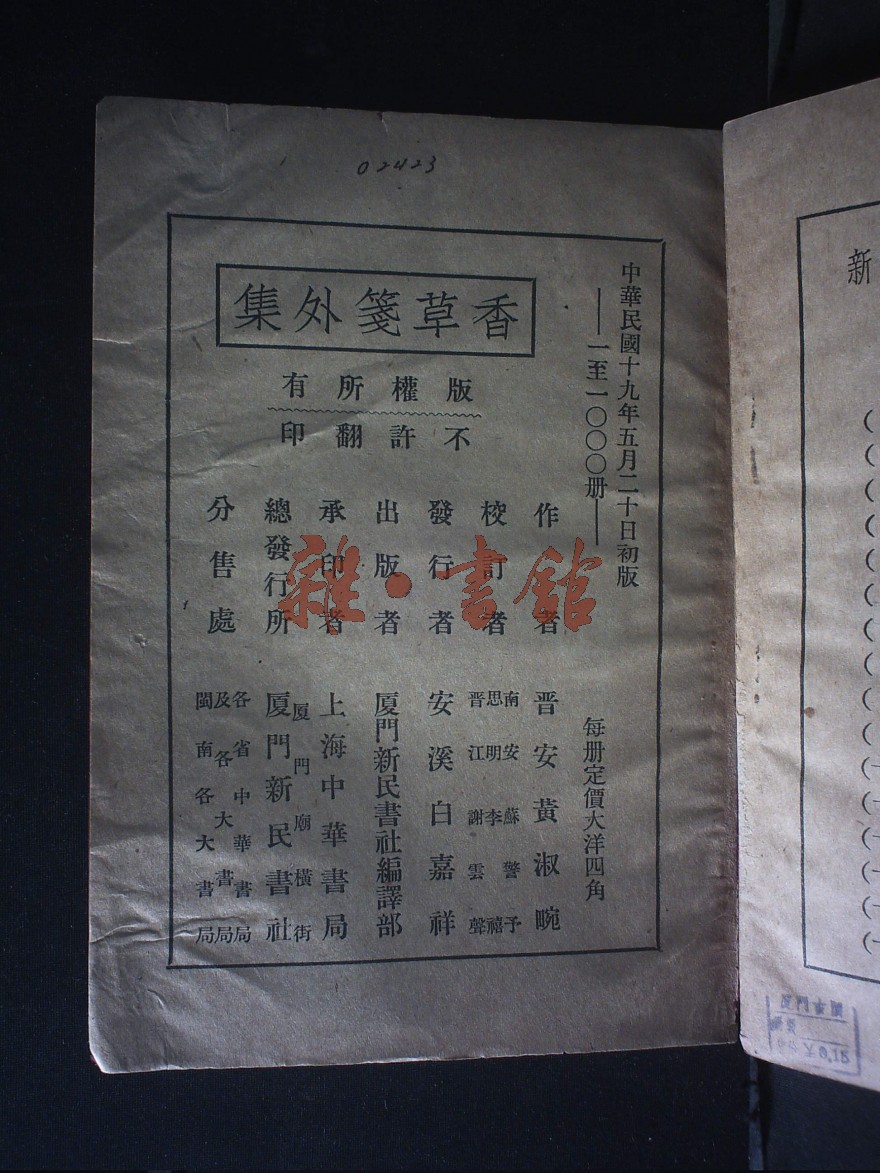 02423
中華民國十九年五月二十日初版
——一至一〇〇〇册——
每册定價大洋四角
香草箋外集
版權所有
不許翻印
作者 晋安黃淑畹
校訂者 南安蘇警予
思明李禧
晋江謝雲聲
發行者 安溪白嘉祥
出版者 厦門新民書社編譯部
承印者 上海中華書局
總發行所 厦門廟橫街
厦門新民書社
分售處 各省中華書局
及各大書局
閩南各大書局
雜·書館
新